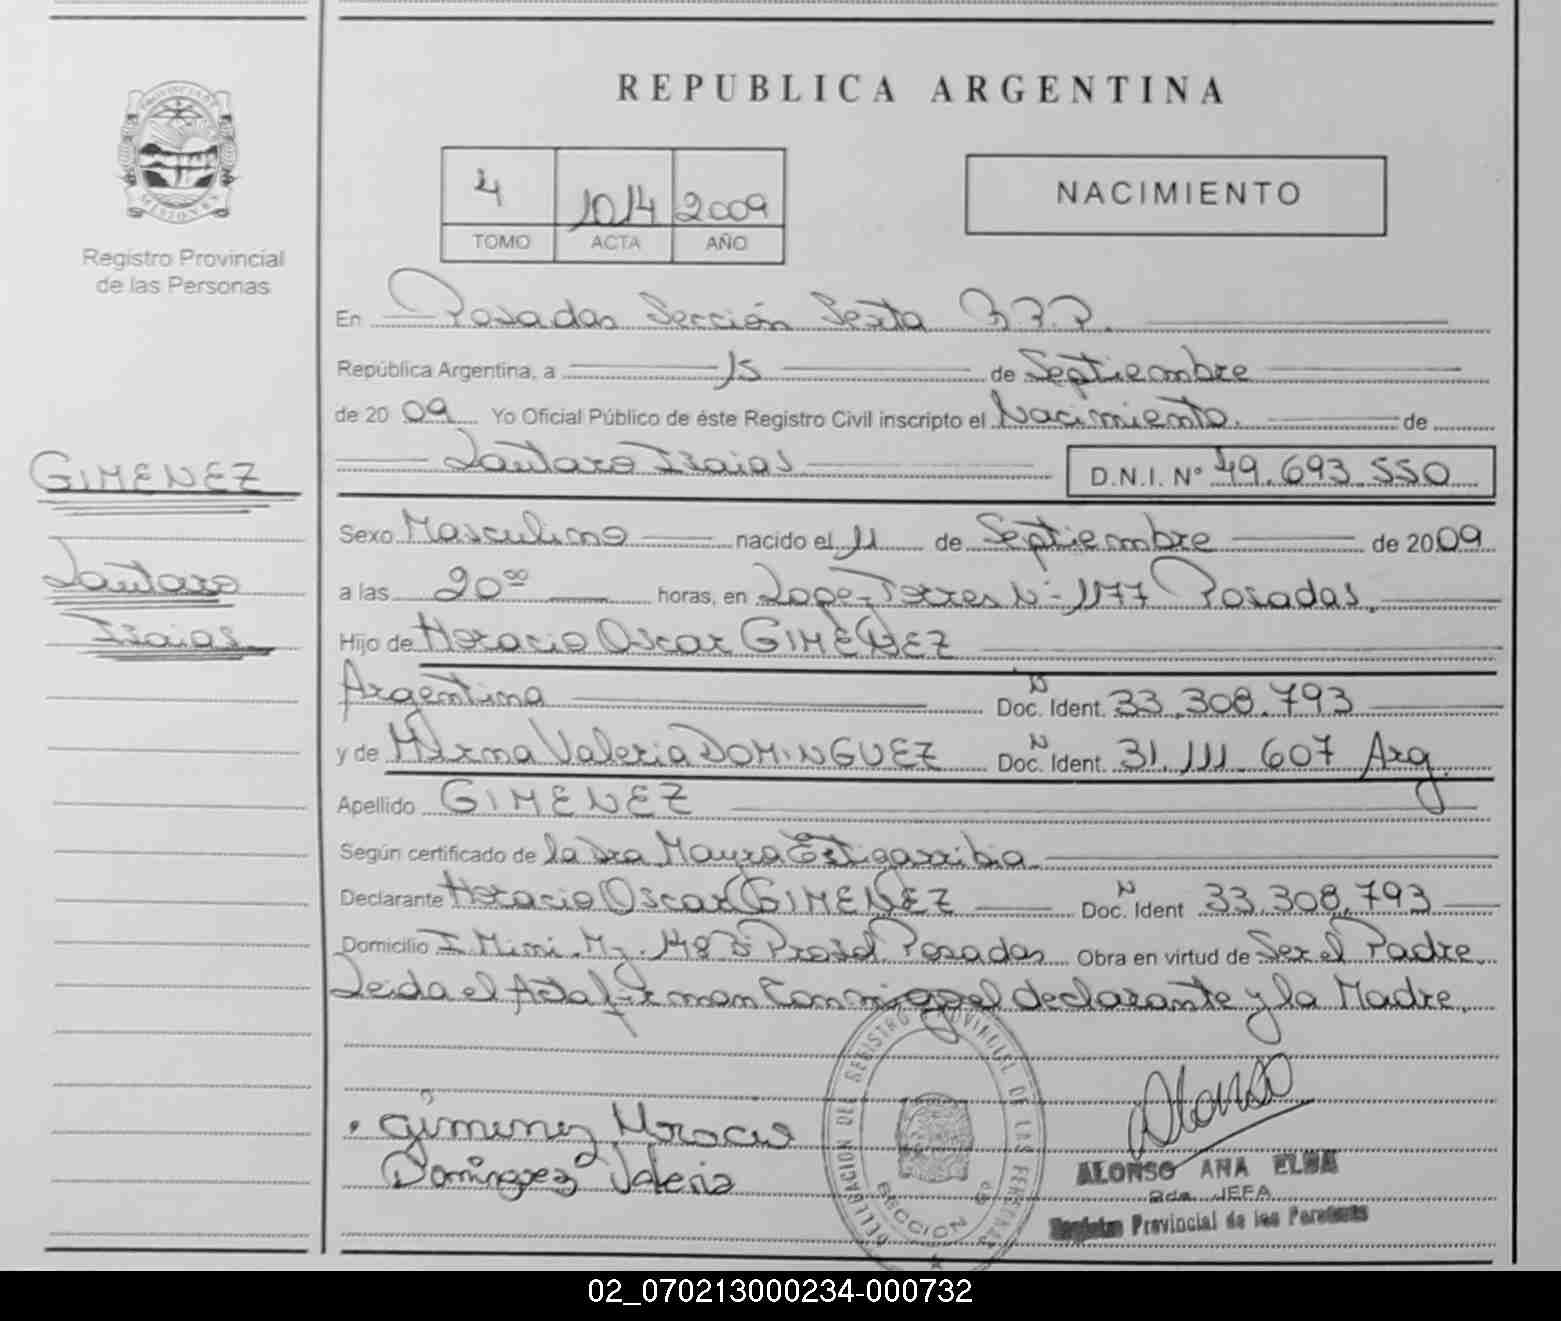 REPUBLICA ARGENTINA
PROVINCIA DE
MISIONES
Registro Provincial
de las Personas
4 1014 2009
TOMO ACTA AÑO
NACIMIENTO
En Posadas Sección Sexta R.P.P.
República Argentina, a 15 de Septiembre
de 2009 Yo Oficial Público de éste Registro Civil inscripto el Nacimiento. de
Lautaro Isaias D.N.I. N° 49.693.550
GIMENEZ
Lautaro
Isaias
Sexo Masculino nacido el 11 de Septiembre de 2009
a las 20°° horas, en Lope Torres N° 1177 Posadas.
Hijo de Horacio Oscar GIMENEZ
Argentina Doc. N Ident. 33.308.793
y de Mirma Valeria DOMINGUEZ Doc. N Ident. 31.111.607 Arg.
Apellido GIMENEZ
Según certificado de la Dra Mayra Estigarribia
Declarante Horacio Oscar GIMENEZ Doc. N Ident 33.308.793
Domicilio I. Mini. Mz. 148 Posadas Obra en virtud de Ser el Padre.
Leida el Acta firman Conmigo el declarante y la Madre.
Gimenez Horacio
Dominguez Valeria
DELEGACION DEL REGISTRO PROVINCIAL DE LAS PERSONAS
SECCION 6ª
Alonso
ALONSO ANA ELMA
2da. JEFA
Registro Provincial de las Personas
02_070213000234-000732